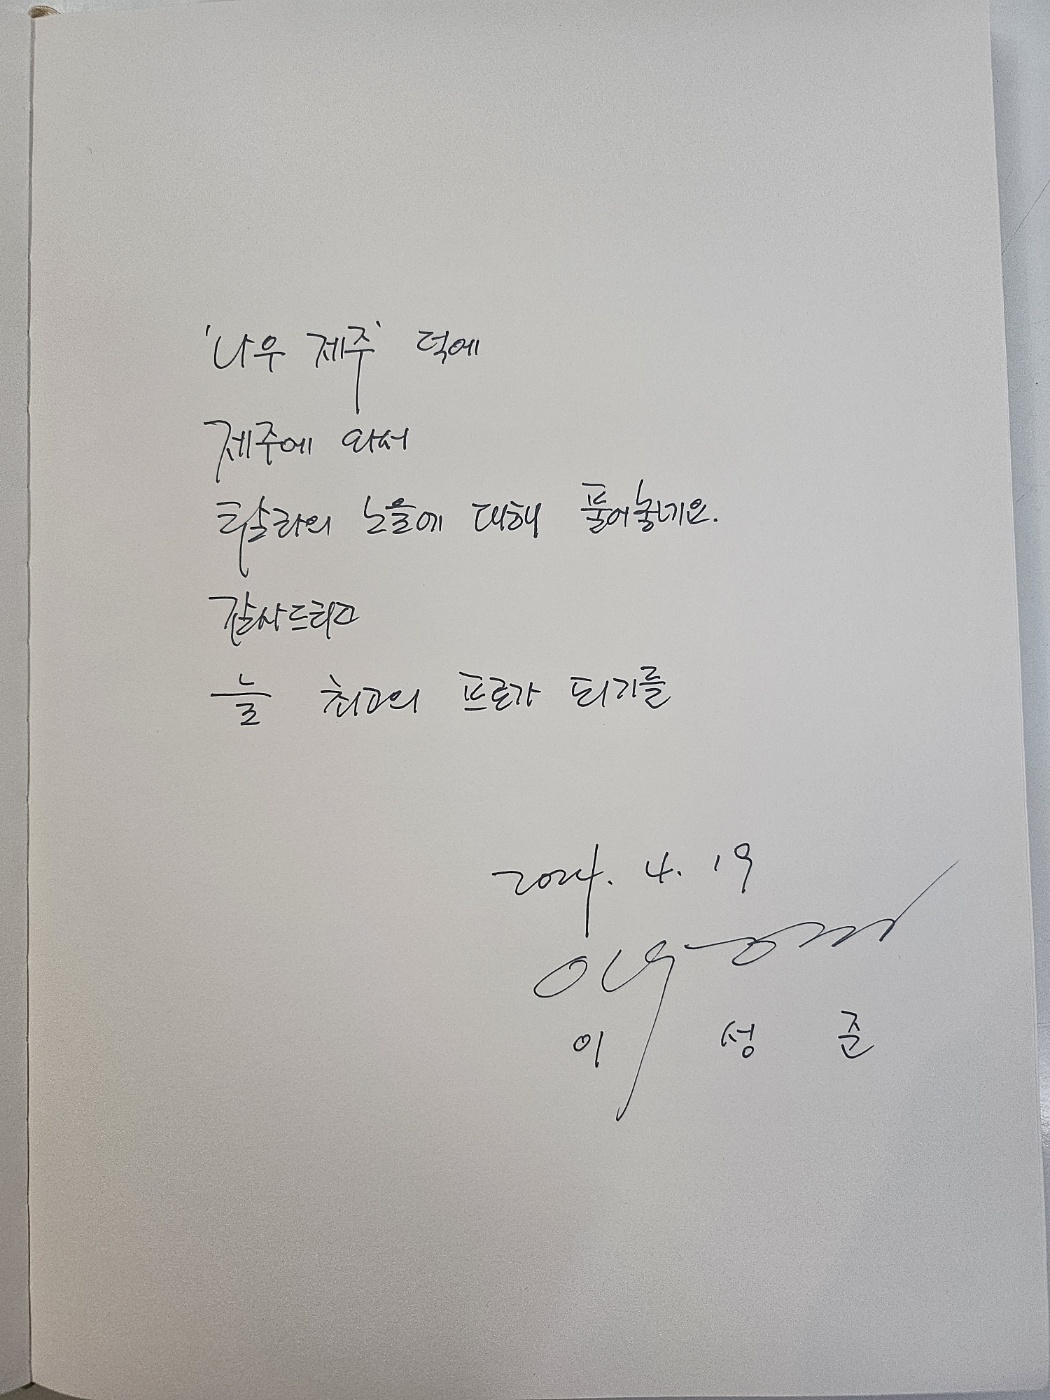 '나우 제주' 덕에
제주에 와서
탐라의 노을에 대해 풀어놓네요.
감사드리고
늘 최고의 프로가 되기를
2024. 4. 19
이 성 준